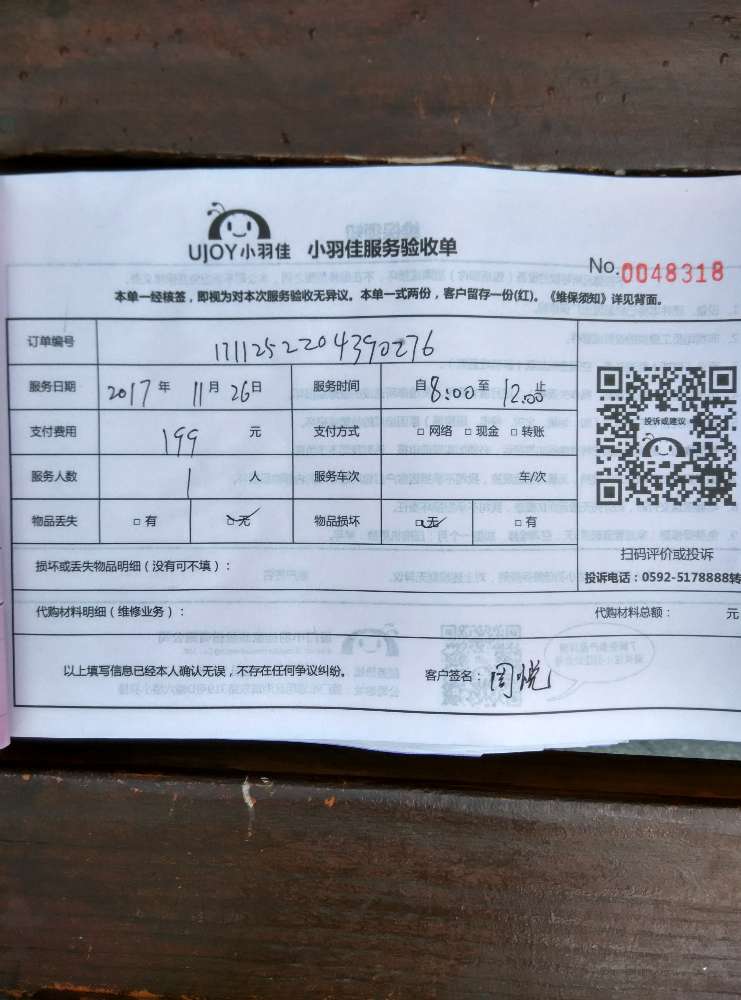 UJOY小羽佳 小羽佳服务验收单
No.0048318
本单一经核签，即视为对本次服务验收无异议。本单一式两份，客户留存一份(红)。《维保须知》详见背面。
订单编号 1711252204390276
服务日期 2017年 11月 26日 服务时间 自8:00至 12:00止
支付费用 199 元 支付方式 □ 网络 □ 现金 □ 转账
投诉或建议
服务人数 1 人 服务车次 车/次
物品丢失 □ 有 □ 无 物品损坏 □ 无 □ 有
扫码评价或投诉
损坏或丢失物品明细（没有可不填）：
投诉电话：0592-5178888转
代购材料明细（维修业务）： 代购材料总额： 元
以上填写信息已经本人确认无误，不存在任何争议纠纷。 客户签名：周悦